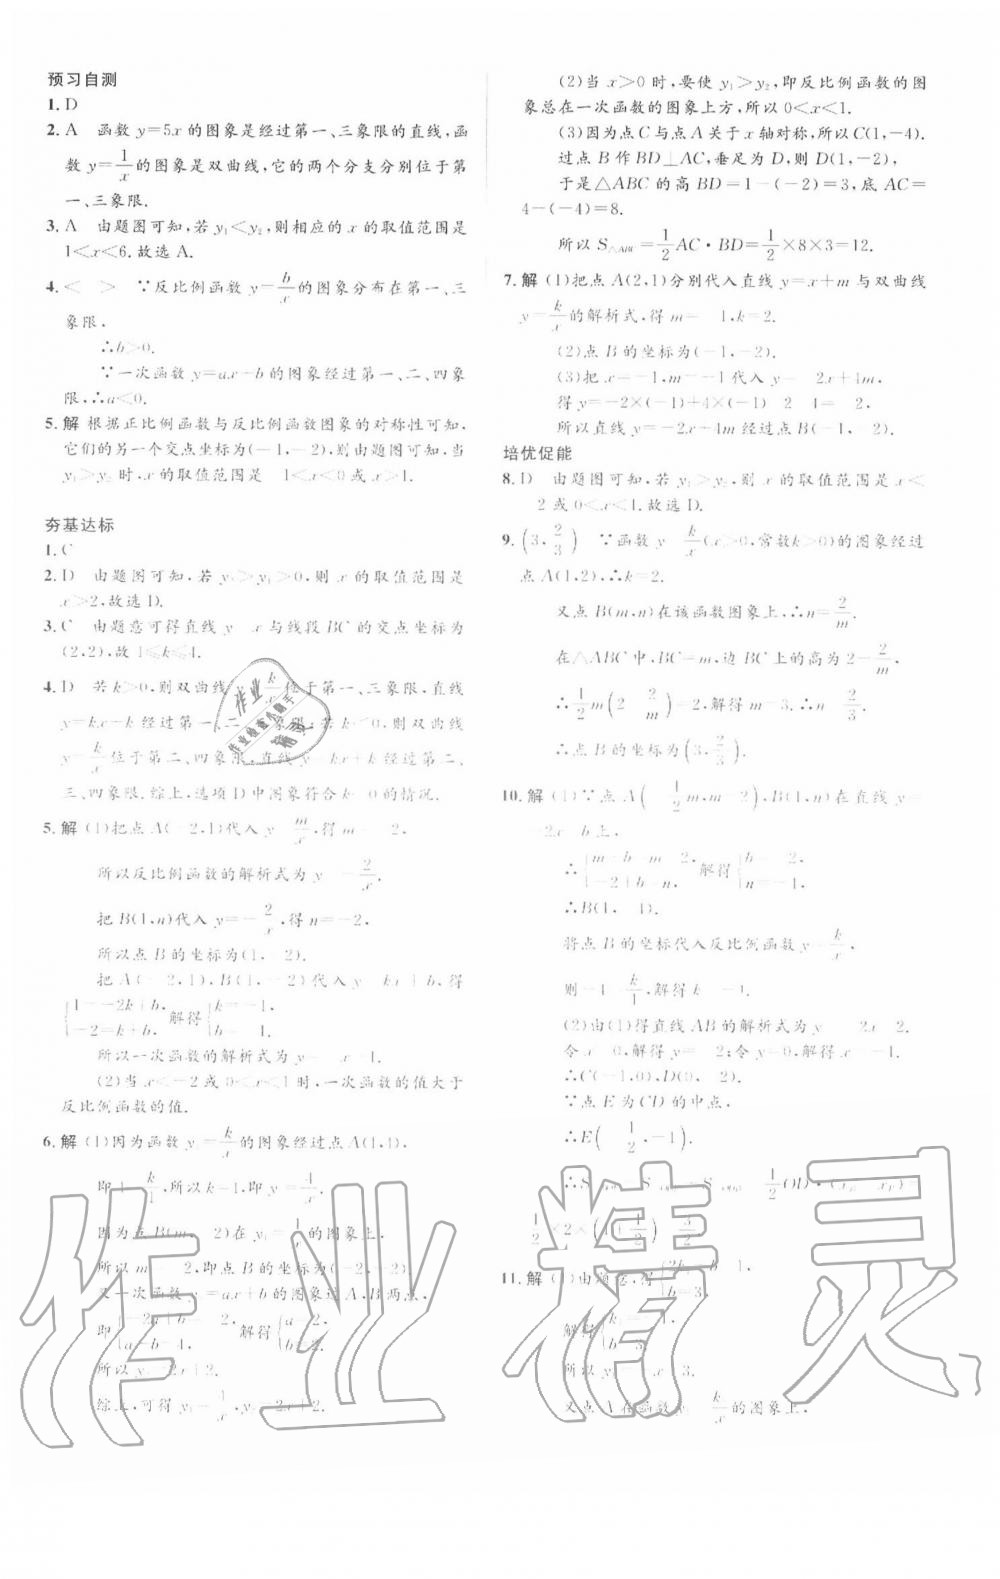 预习自测
1. D
2. A 函数 y=5x 的图象是经过第一、三象限的直线，函
数 y=1/x 的图象是双曲线，它的两个分支分别位于第
一、三象限.
3. A 由题图可知，若 y₁<y₂，则相应的 x 的取值范围是
1<x<6. 故选 A.
4. < > ∵反比例函数 y=b/x 的图象分布在第一、三
象限，
∴b>0.
∵一次函数 y=ax-b 的图象经过第一、二、四象
限，∴a<0.
5. 解 根据正比例函数与反比例函数图象的对称性可知，
它们的另一个交点坐标为(-1，-2)，则由题图可知，当
y₁>y₂ 时，x 的取值范围是 1<x<0 或 x>1.
夯基达标
1. C
2. D 由题图可知，若 y₂>y₁>0，则 x 的取值范围是
x>2，故选 D.
3. C 由题意可得直线 y x 与线段 BC 的交点坐标为
(2，2)，故 1≤k≤4.
4. D 若 k>0，则双曲线 y k/x 位于第一、三象限，直线
y=kx-k 经过第一、
则双曲线
y k/x 位于第二、四象限，直线
经过第一、二、
三、四象限. 综上，选项 D 中图象符合 k 0 的情况.
5. 解 (1)把点 A(-2，1)代入 y m/x，得 m 2，
所以反比例函数的解析式为 y 2/x
把 B(1，n)代入 y=-2/x，得 n=-2.
所以点 B 的坐标为(1，-2).
把 A(-2，1)，B(1，-2)代入 y kx+b，得
{1=-2k+b， -2=k+b， 解得 {k=-1， b 1.
所以一次函数的解析式为 y x 1.
(2)当 x<-2 或 0<x<1 时，一次函数的值大于
反比例函数的值.
6. 解 (1)因为函数 y₁=k/x 的图象经过点 A(1，4)，
即 4 k/1，所以 k 4，即 y₁ 4/x.
因为点 B(m，2)在 y₁ 4/x 的图象上，
所以 m 2，即点 B 的坐标为(-2，-2).
又一次函数 y₂=ax+b 的图象过 A、B 两点，
即 {-2a+b 2， a+b=4， 解得 {a=2， b=2.
所以 y₂ 2x+2.
综上，可得 y₁ 4/x，y₂=2x+2.
(2)当 x>0 时，要使 y₁>y₂，即反比例函数的图
象总在一次函数的图象上方，所以 0<x<1.
(3)因为点 C 与点 A 关于 x 轴对称，所以 C(1，-4).
过点 B 作 BD⊥AC，垂足为 D，则 D(1，-2)，
于是△ABC 的高 BD=1-(-2)=3，底 AC=
4-(-4)=8.
所以 S△ABC=1/2AC·BD=1/2×8×3=12.
7. 解 (1)把点 A(2，1)分别代入直线 y=x+m 与双曲线
y=k/x 的解析式，得 m 1，k=2.
(2)点 B 的坐标为(-1，-2).
(3)把 x=-1，m 1 代入 y 2x+4m，
得 y=-2×(-1)+4×(-1) 2 4= 2，
所以直线 y=-2x+4m 经过点 B.
培优促能
8. D 由题图可知，若 y₁>y₂，则 x 的取值范围是 x<
2 或 0<x<1. 故选 D.
9. (3，2/3) ∵函数 y k/x(x>0，常数 k>0)的图象经过
点 A(1，2)，∴k=2.
又点 B(m，n)在该函数图象上，∴n=2/m.
在△ABC 中，BC=m，边 BC 上的高为 2-2/m.
∴1/2m(2 2/m)=2，解得 m=3. ∴n 2/3.
∴点 B 的坐标为(3，2/3).
10. 解 (1)∵点 A(-1/2m，m-2)，B(1，n)在直线 y
2x b 上，
∴{m+b m 2， -2+b=n， 解得 {b 2， n 4.
∴B(1， 4).
将点 B 的坐标代入反比例函数 y k/x，
则 -4 k/1，解得 k 4.
(2)由(1)得直线 AB 的解析式为 y 2x 2.
令 x 0，解得 y 2；令 y 0，解得 x 1.
∴C(-1，0)，D(0，2).
∵点 E 为 CD 的中点，
∴E(1/2，-1).
1/2OD·
1/2×2×(1+1/2)
11. 解 (1)由题意，得
b=3，
解得
b 3.
所以
又点 A 在函数 y₁ k/x 的图象上，
作业精灵
作业检查小助手
精灵